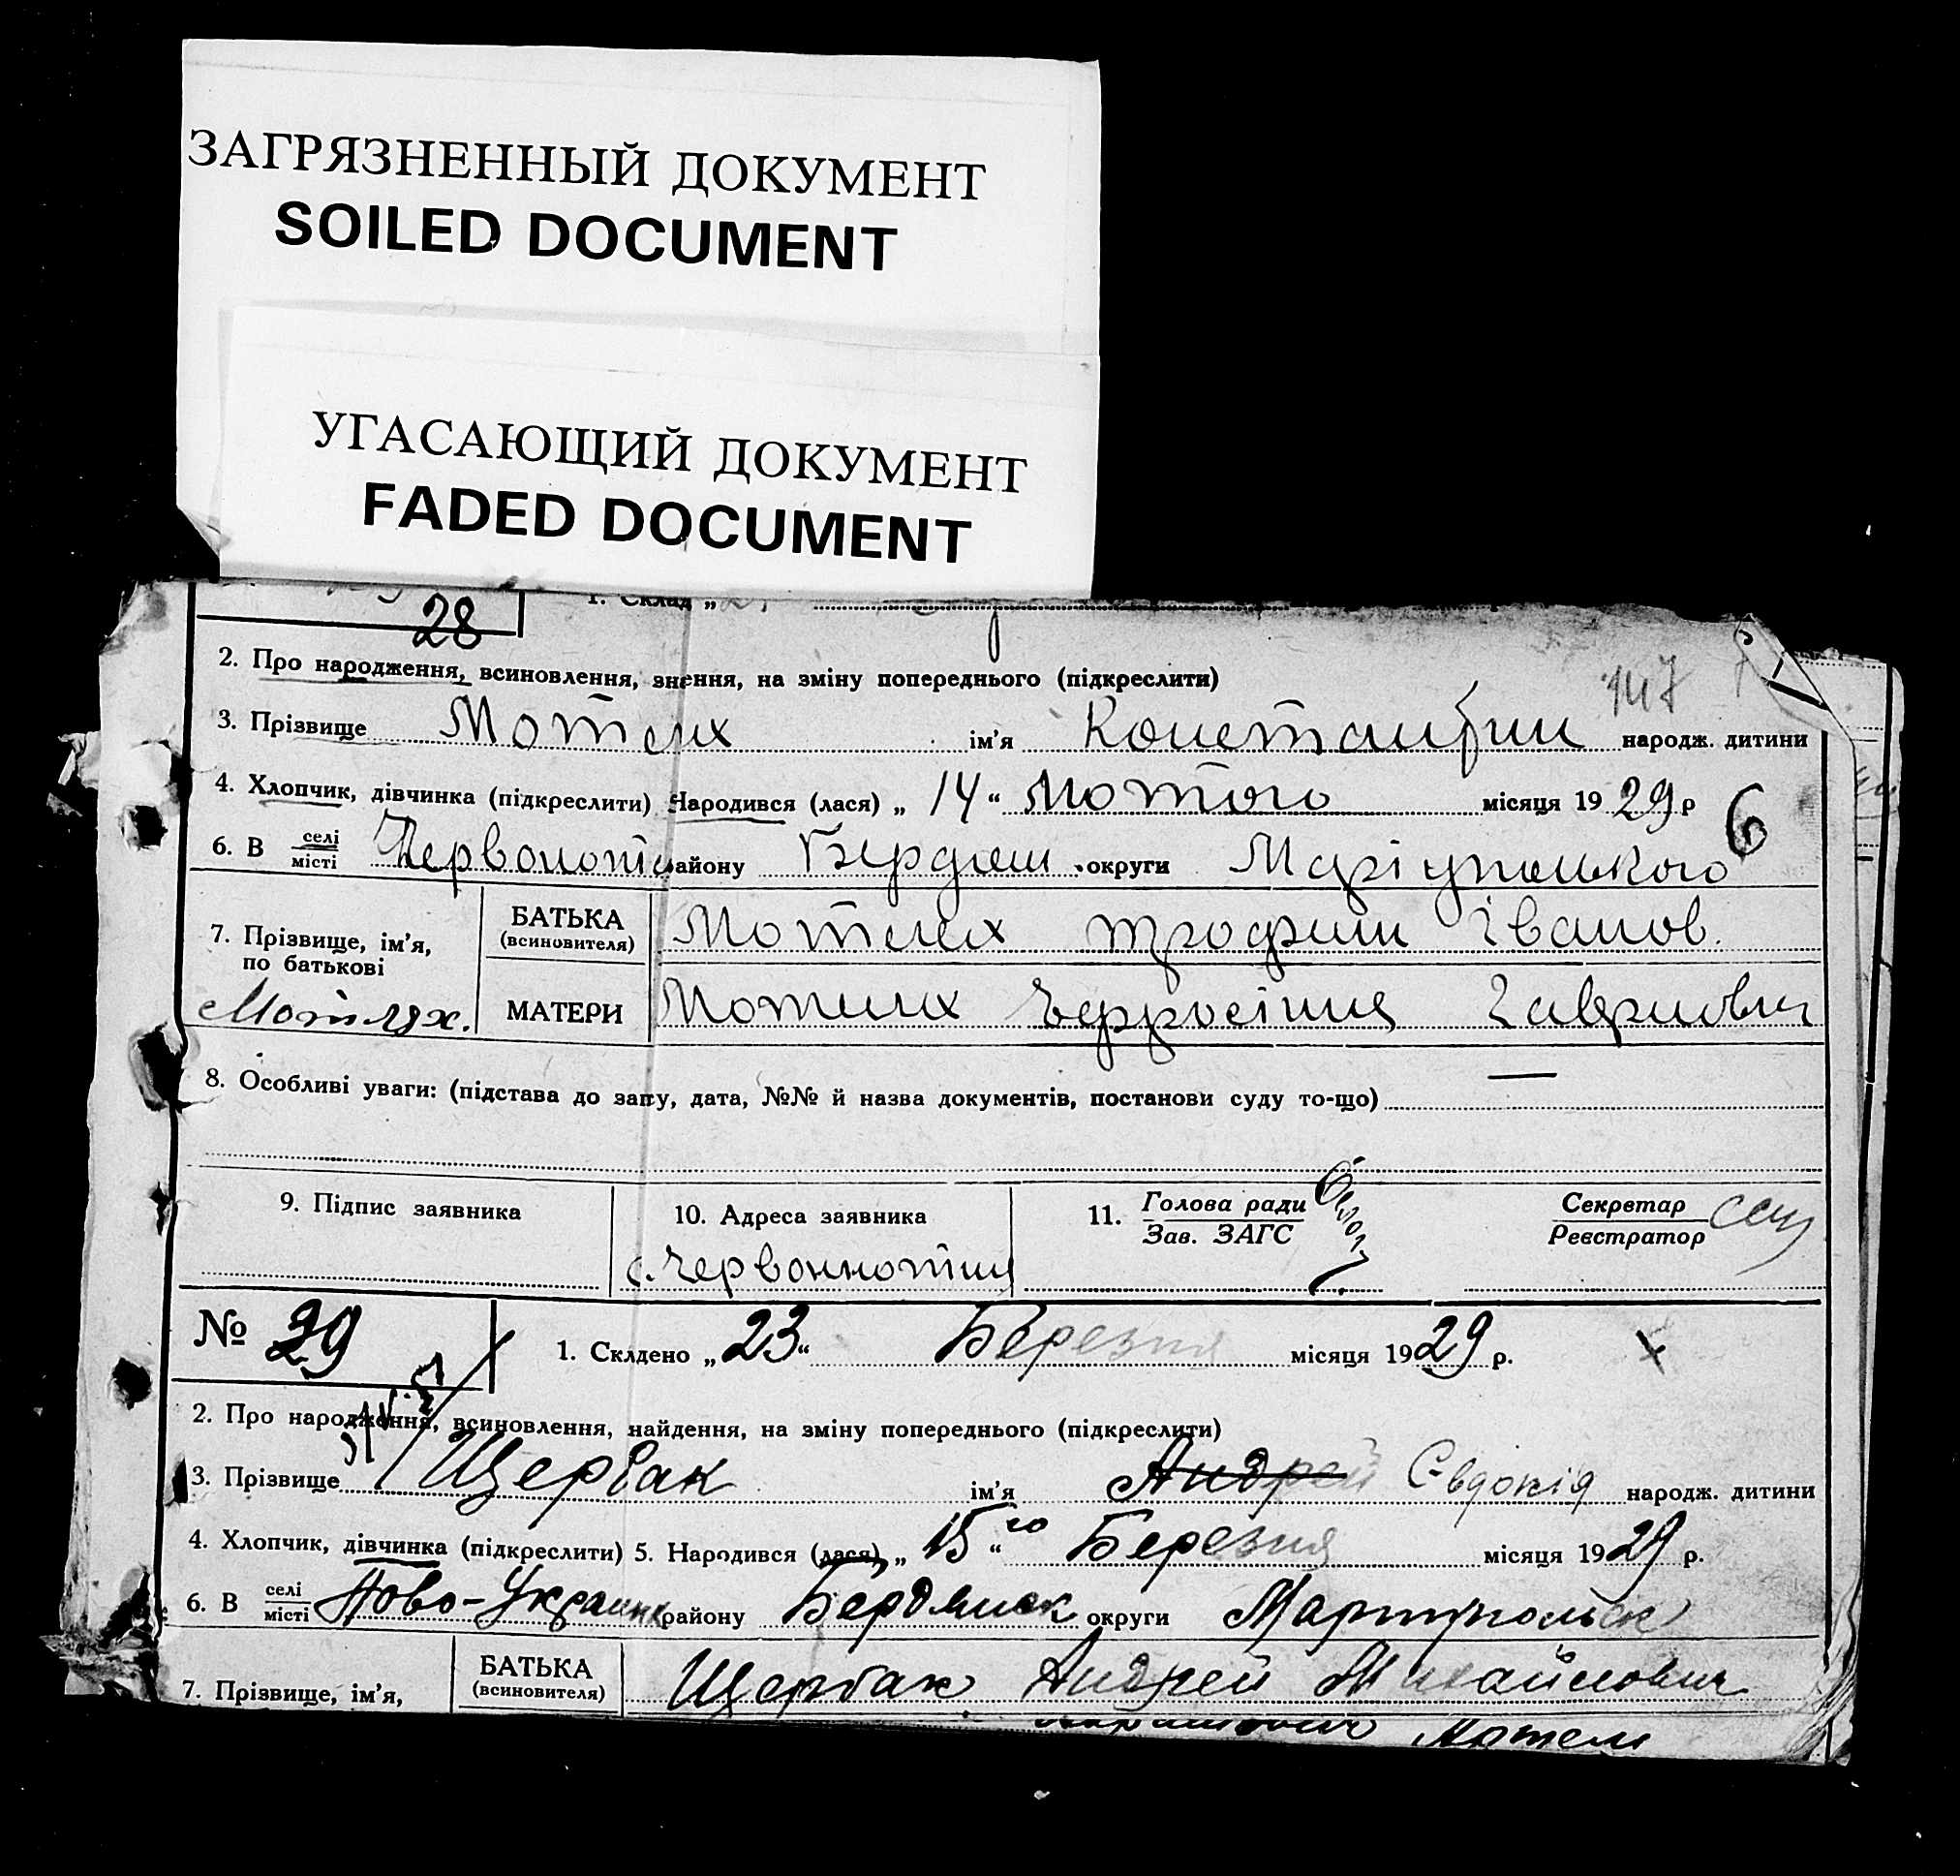 ЗАГРЯЗНЕННЫЙ ДОКУМЕНТ
SOILED DOCUMENT
УГАСАЮЩИЙ ДОКУМЕНТ
FADED DOCUMENT
28
1. Склад „
2. Про народження, всиновлення, знення, на зміну попереднього (підкреслити)
147
3. Прізвище Мотлях ім'я Константин народж. дитини
4. Хлопчик, дівчинка (підкреслити) Народився (лася) „ 14 “ Лютого місяця 19 29 р
6
6. В селі/місті району Бердян. округи Маріупольского
7. Прізвище, ім'я, по батькові
Мотлях.
БАТЬКА (всиновителя) Мотлях Трофим Іванов.
МАТЕРИ Мотлях Гавриловн
8. Особливі уваги: (підстава до запу, дата, №№ й назва документів, постанови суду то-що) —
9. Підпис заявника
10. Адреса заявника
11. Голова ради/Зав. ЗАГС
Секретар/Реєстратор
№ 29
1. Складено „ 23 “ Березня місяця 19 29 р.
2. Про народження, всиновлення, найдення, на зміну попереднього (підкреслити)
3. Прізвище Щербак ім'я Андрей Євдокія народж. дитини
4. Хлопчик, дівчинка (підкреслити) 5. Народився (лася) „ 15 го “ Березня місяця 19 29 р.
6. В селі/місті Ново-Украинк району Бердянск округи Мариупольск
7. Прізвище, ім'я,
БАТЬКА (всиновителя) Щербак Андрей Михайлович